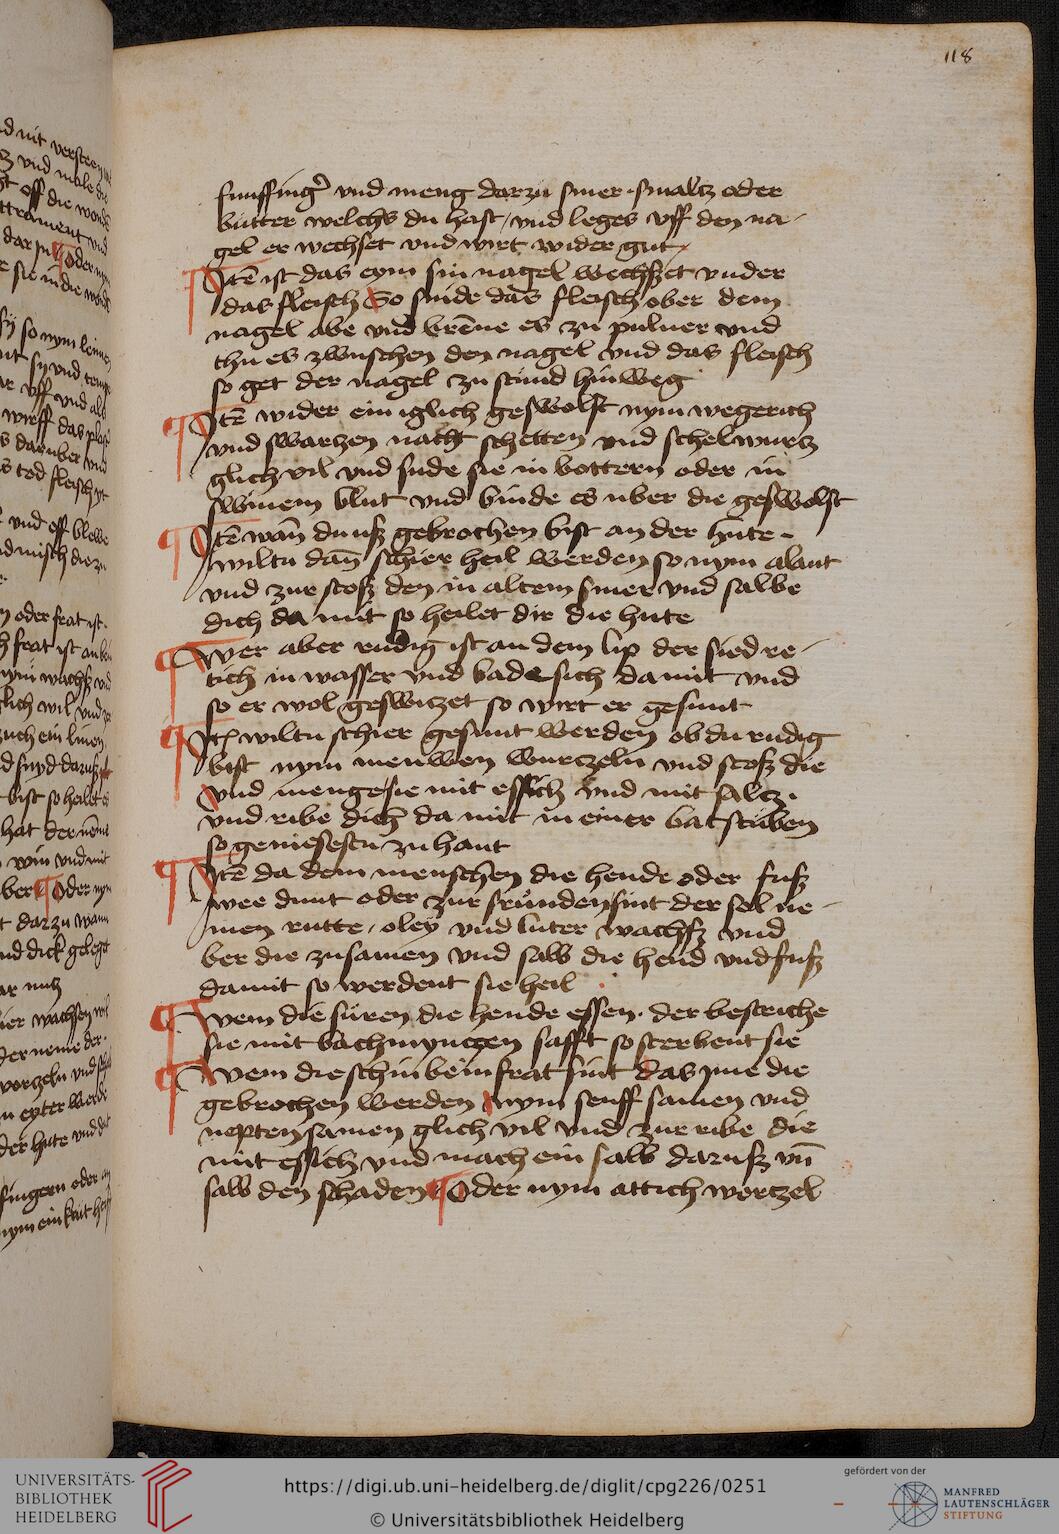 118
funffinger vnd meng darzu smer smaltz oder
butter welchs du hast / vnd leges vff den na-
gel er wechset vnd wirt wider gut
Itē ist das eym sin nagel wechszet vnder
das fleisch So snide das fleisch ober dem
nagel abe vnd brēne es zu puluer vnd
thu es zwuschen den nagel vnd das fleisch
so get der nagel zu stund hinweg
Itē wider ein iglich geswolst nym wegerich
vnd swartzen nacht schetten vnd schelwurtz
glich vil vnd sude sie in bottern oder in
swinem blut vnd binde es uber die geswolst
Itē wan̄ du usz gebrochen bist an der hute
wiltu dan̄ schier heil werden so nym alant
vnd zur stosz den in altem smer vnd salbe
dich da mit so heilet dir die hute
Wer aber rudig ist an dem lip der sied re-
tich in wasser vnd bade sich damit vnd
so er wol geswitzet so wirt er gesunt
Itē wiltu schier gesunt werden ob du rudig
bist nym menwen wurtzeln vnd stosz die
vnd menge sie mit essich vnd mit saltz
vnd ribe dich da mit in einer batstuben
so genisestu zu hant
Itē da dem menschen die hende oder fusz
wee dunt oder zur srunden sint der sol ne-
men rutte oley vnd luter wachsz vnd
ber die zusamen vnd salb die hend vnd fusz
damit so werdent sie heil
Wem die süren die hende essen der bestriche
sie mit bachmyntzen safft so sterbent sie
Wem die schinbein frat sint das yme die
gebrochen werden nym senff samen vnd
nepten samen glich vil vnd zur ribe die
mit essich vnd mach ein salb darusz vn̄
salb den schaden Oder nym attich wortzel
UNIVERSITÄTS-
BIBLIOTHEK
HEIDELBERG
https://digi.ub.uni-heidelberg.de/diglit/cpg226/0251
© Universitätsbibliothek Heidelberg
gefördert von der
MANFRED
LAUTENSCHLÄGER
STIFTUNG